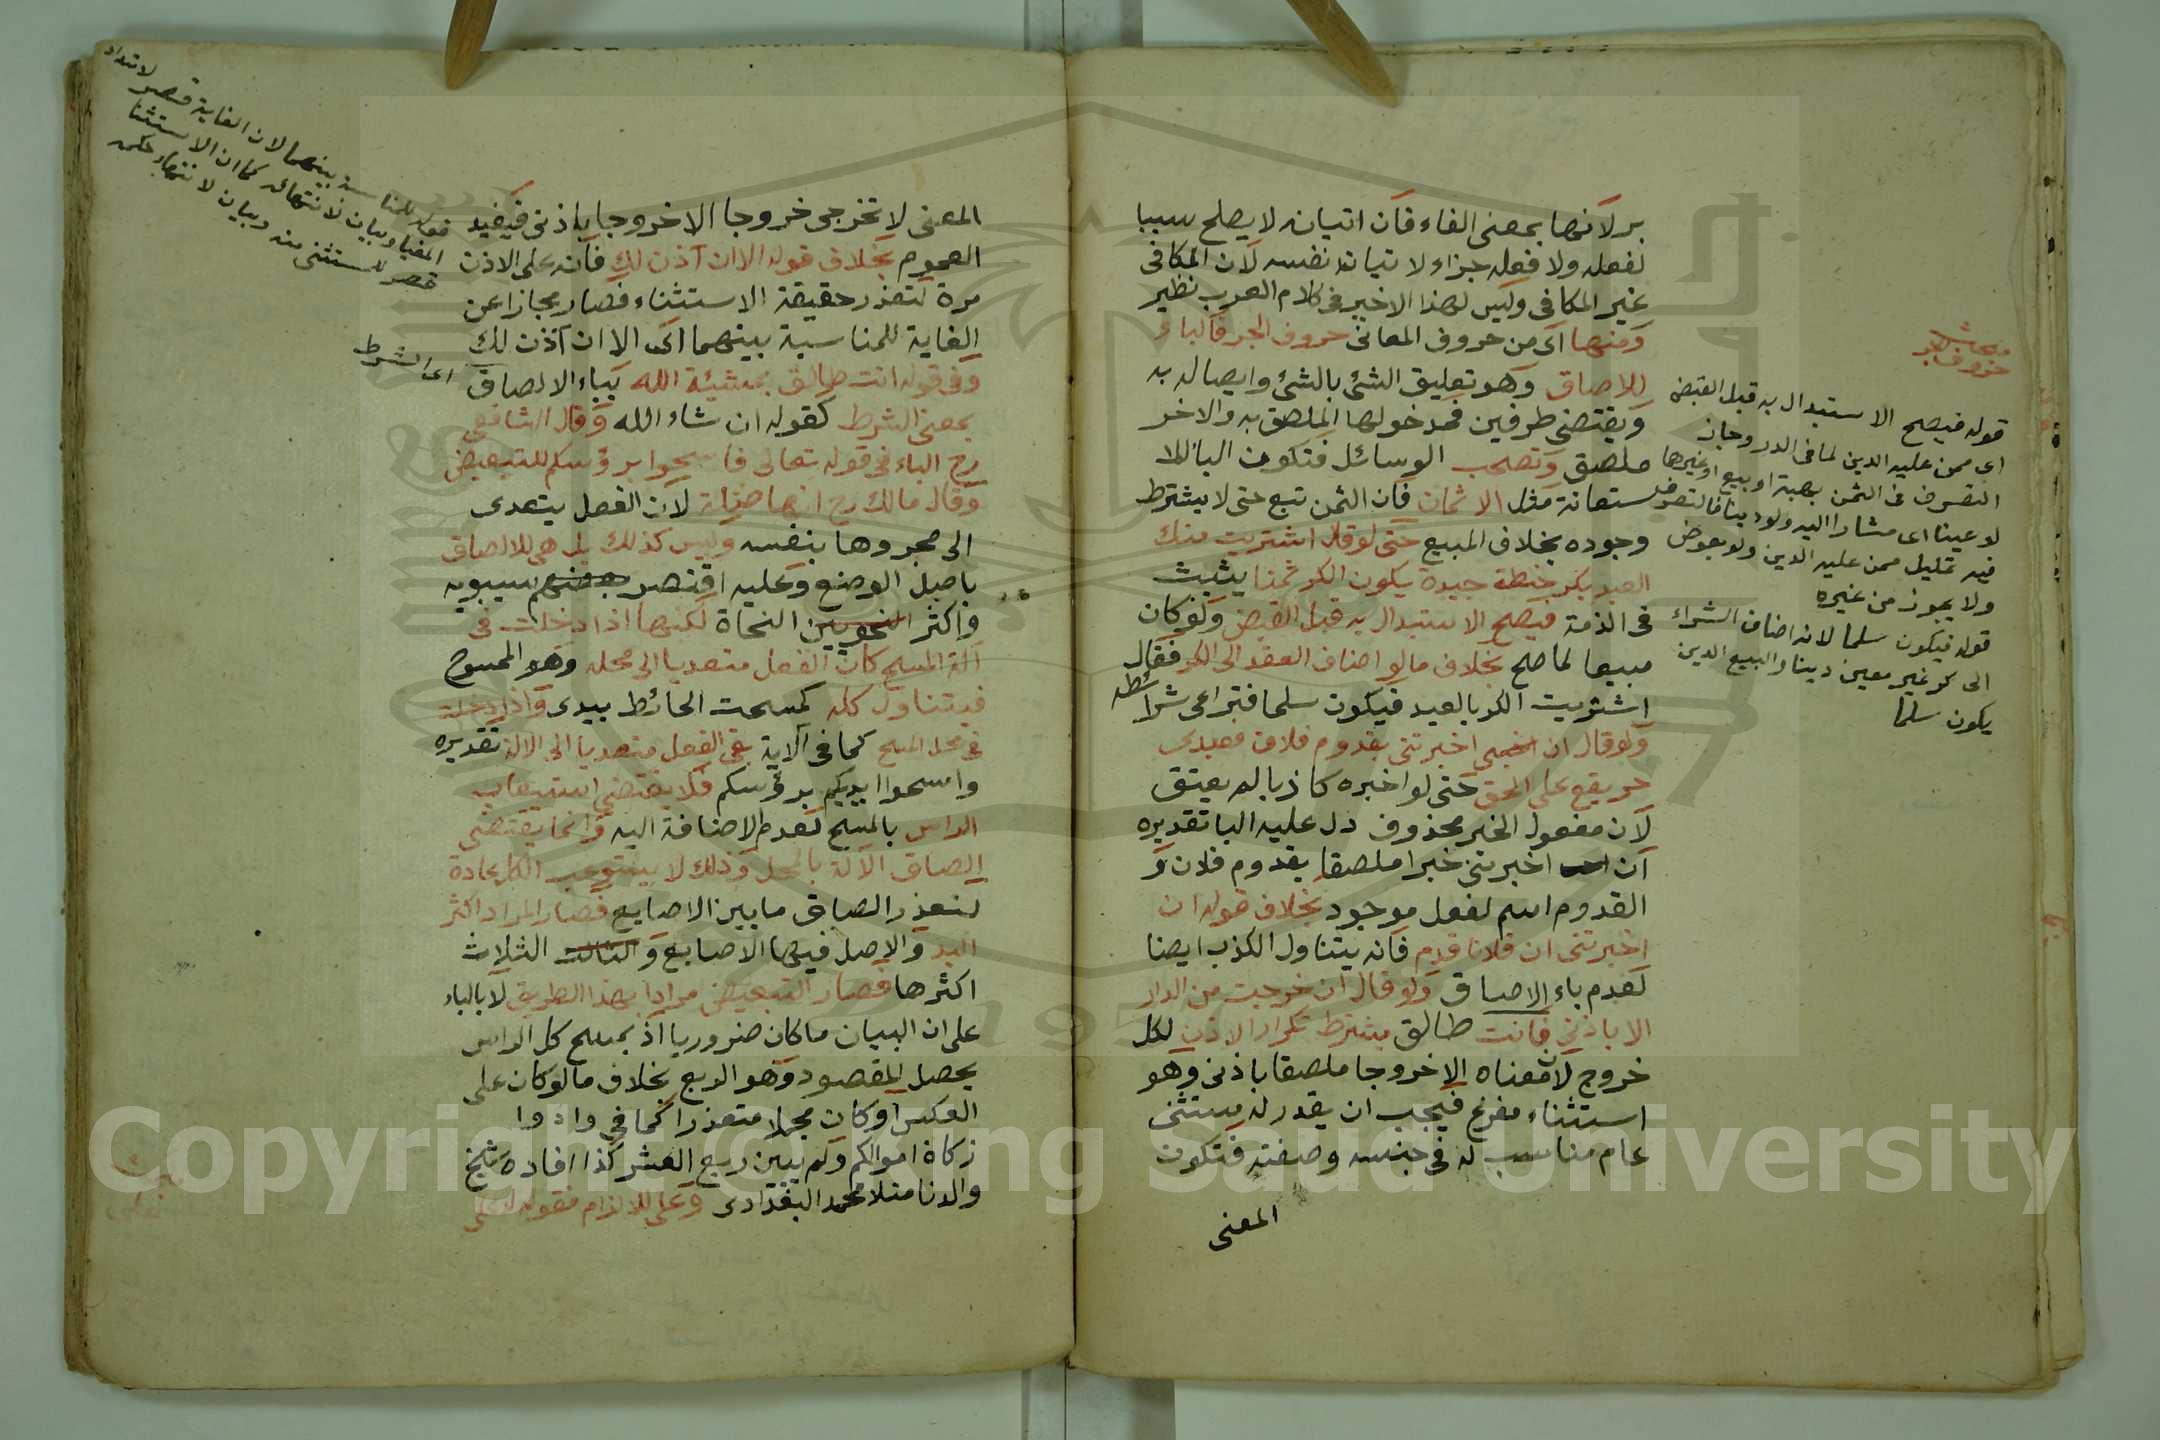 بر لانها بمعنى الفاء فان اتيانه لا يصلح سببا
لفعله ولا فعله جزاء لاتيانه نفسه لان المكافى
غير المكافى وليس لهذا الاخير فى كلام العرب نظير
ومنها اى من حروف المعانى حروف الجر فالباء
للالصاق وهو تعليق الشئ بالشئ وايصاله به
ويقتضى طرفين فمدخولها الملصق به والاخر
ملصق وتصحب الوسائل فتكون البا للا
ستعانة مثل الاثمان فان الثمن تبع حتى لا يشترط
وجوده بخلاف المبيع حتى لو قال اشتريت منك
العبد بكر حنطة جيدة يكون الكر ثمنا يثبت
فى الذمة فيصح الاستبدال به قبل القبض ولو كان
مبيعا لما صح بخلاف ما لو اضاف العقد الى الكر فقال
اشتريت الكر بالعبد فيكون سلما فتراعى شرائطه
ولو قال ان اخبرتنى بقدوم فلان فعبدى
حر يقع على الحق حتى لو اخبره كاذبا لم يعتق
لان مفعول الخبر محذوف دل عليه البا تقديره
ان اخبرتنى خبرا ملصقا بقدوم فلان و
القدوم اسم لفعل موجود بخلاف قوله ان
اخبرتنى ان فلانا قدم فانه يتناول الكذب ايضا
لعدم باء الالصاق ولو قال ان خرجت من الدار
الا باذنى فانت طالق يشترط تكرار الاذن لكل
خروج لان معناه الا خروجا ملصقا باذنى وهو
استثناء مفرغ فيجب ان يقدر له مستثنى
عام مناسب له فى جنسه وصفته فتكون
المعنى
مبحث حروف الجر
قوله فيصح الاستبدال به قبل القبض
اى ممن عليه الدين لما فى الدر وجاز
التصرف فى الثمن بهبة او بيع او غيرها
لو عينا اى مشارا اليه ولو دينا فالتصرف
فيه تمليك ممن عليه الدين ولو بعوض
ولا يجوز من غيره
قوله فيكون سلما لانه اضاف الشراء
الى كر غير معين دينا والبيع الدين
يكون سلما
المعنى لا تخرجى خروجا الا خروجا باذنى فيفيد
العموم بخلاف قوله الا ان آذن لك فانه على الاذن
مرة لتعذر حقيقة الاستثناء فصار مجازا عن
الغاية للمناسبة بينهما اى الا ان آذن لك
وفى قوله انت طالق بمشيئة الله بباء الالصاق
بمعنى الشرط كقوله ان شاء الله وقال الشافعى
رح الباء فى قوله تعالى فامسحوا برؤسكم للتبعيض
وقال مالك رح انها صلة لان الفعل يتعدى
الى مجروها بنفسه وليس كذلك بل هى للالصاق
باصل الوضع وعليه اقتصر سيبويه
واكثر النحويين النحاة لكنها اذا دخلت فى
آلة المسح كان الفعل متعديا الى محله وهو الممسوح
فيتناول كله كمسحت الحائط بيدى واذا دخلت
فى محل المسح كما فى الآية بقى الفعل متعديا الى الالة تقديره
وامسحوا ايديكم برؤسكم فلا يقتضى استيعاب
الراس بالمسح لعدم الاضافة اليه وانما يقتضى
الصاق الآلة بالمحل وذلك لا يستوعب الكل عادة
لتعذر الصاق ما بين الاصابع فصار المراد اكثر
اليد والاصل فيها الاصابع و الثلاث
اكثرها فصار التبعيض مرادا بهذا الطريق لا بالباء
على ان البيان ما كان ضروريا اذ بمسح كل الراس
يحصل المقصود وهو الربع بخلاف ما لو كان على
العكس او كان مجملا متعذرا كما فى وادوا
زكاة اموالكم ولم يبين ربع العشر كذا افاده شيخ
والدنا منلا محمد البغدادى وعلى للالزام فقوله له على
قوله للمناسبة بينهما لان الغاية قصر لامتداد
المغيا وبيان لانتهائه كما ان الاستثنا
قصر للمستثنى منه وبيان لانتهاء حكمه
اى الشرط
مبحث على
Copyright © King Saud University
1957